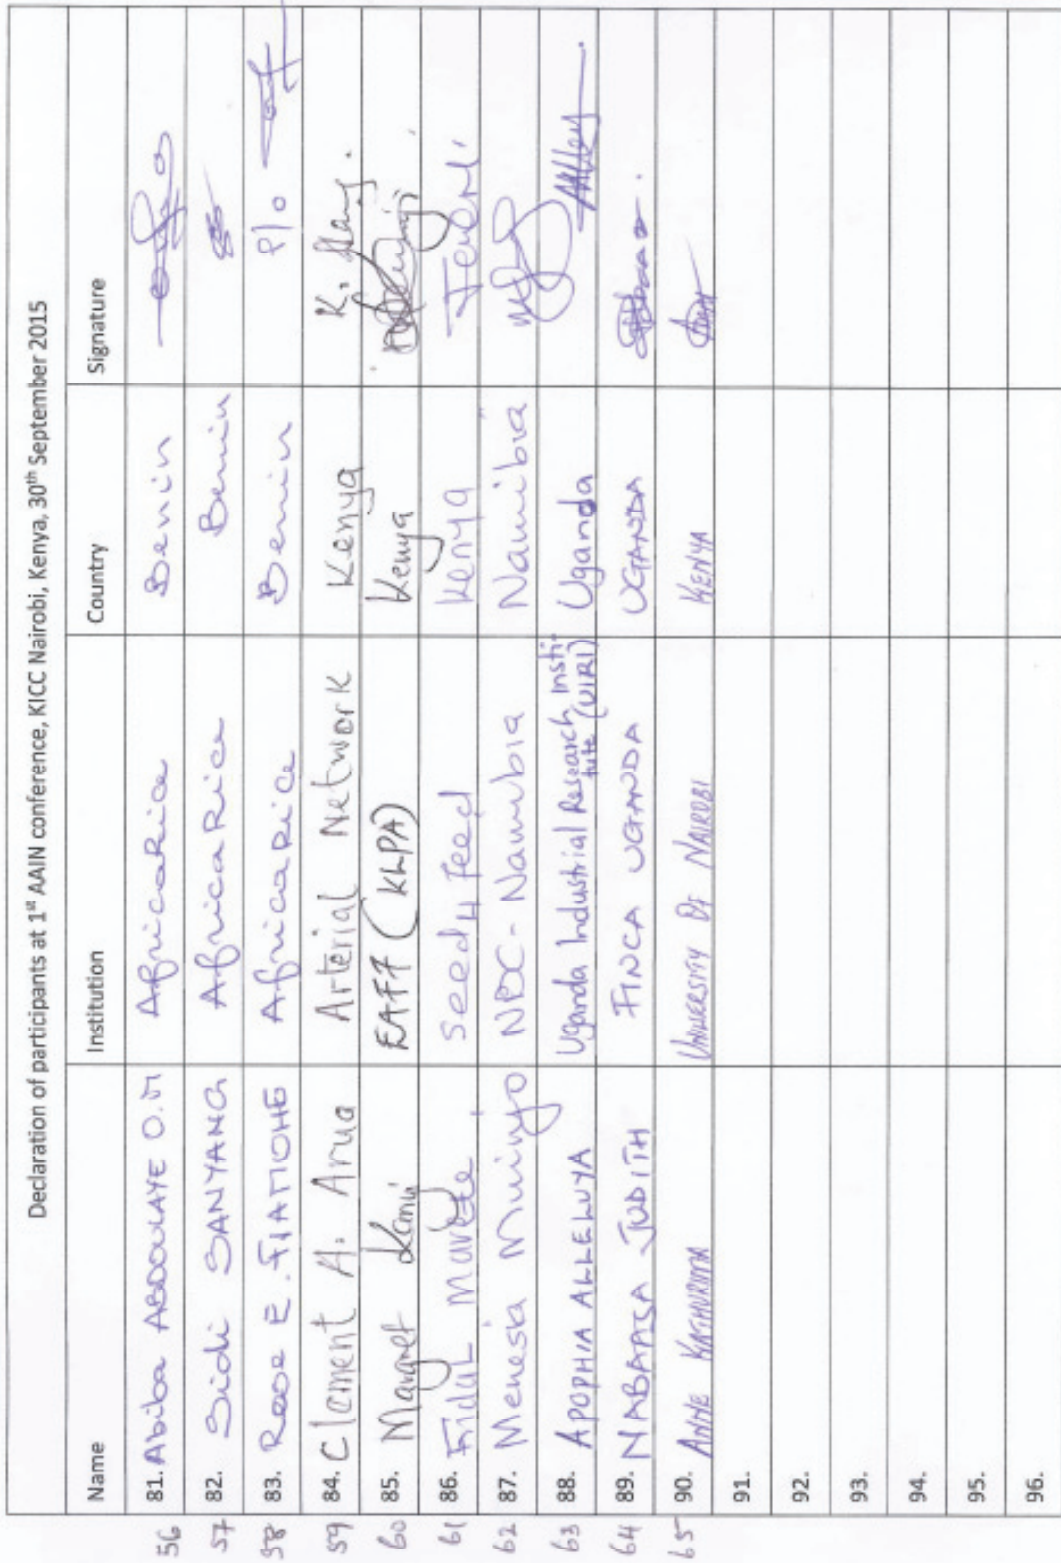 Declaration of participants at 1st AAIN conference, KICC Nairobi, Kenya, 30th September 2015
Name Institution Country Signature
56 81. Abiba ABDOULAYE O.M AfricaRice Benin
57 82. Sidi SANYANG AfricaRice Benin
58 83. Rose E. FIAMOHE AfricaRice Benin P/o
59 84. Clament A. Arua Arterial Network Kenya K.
60 85. Margret Kamu EAFF (KLPA) Kenya
61 86. Seed4Feed Kenya
62 87. Menesia Muinjo NBC-Namibia Namibia
63 88. APOPHIA ALLELUYA Uganda Industrial Research Insti-
tute (UIRI) Uganda
64 89. NABAASA JUDITH FINCA UGANDA UGANDA
65 90. ANNE KATHURIMA UNIVERSITY OF NAIROBI KENYA
91.
92.
93.
94.
95.
96.